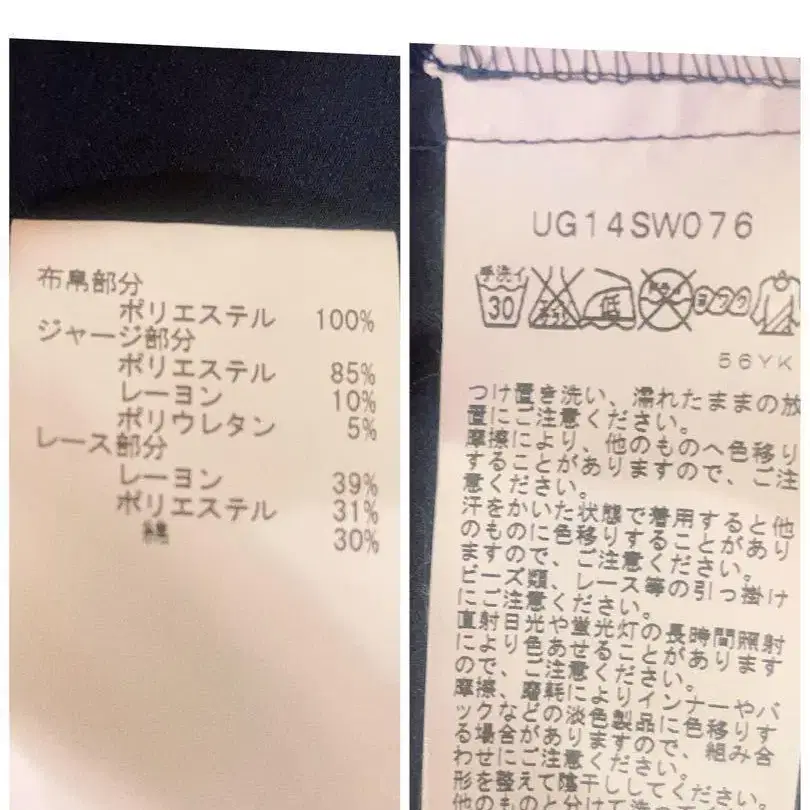 布帛部分
ポリエステル 100%
ジャージ部分
ポリエステル 85%
レーヨン 10%
ポリウレタン 5%
レース部分
レーヨン 39%
ポリエステル 31%
綿 30%
UG14SW076
手洗イ
30
エンソサラシ
低
ドライ
ヨワク
56YK
つけ置き洗い、濡れたままの放
置にご注意ください。
摩擦により、他のものへ色移り
することがありますので、ご注
意ください。
汗をかいた状態で着用すると他
のものに色移りすることがあり
ますので、ご注意ください。
ビーズ類、レース等の引っ掛け
にご注意ください。
直射日光や蛍光灯の長時間照射
により色あせることがあります
ので、ご注意ください。
摩擦、磨耗によりインナーやバ
ックなどの淡色製品に色移りす
る場合がありますので、組み合
わせにご注意ください。
形を整えて陰干ししてください。
他のものと分けて洗